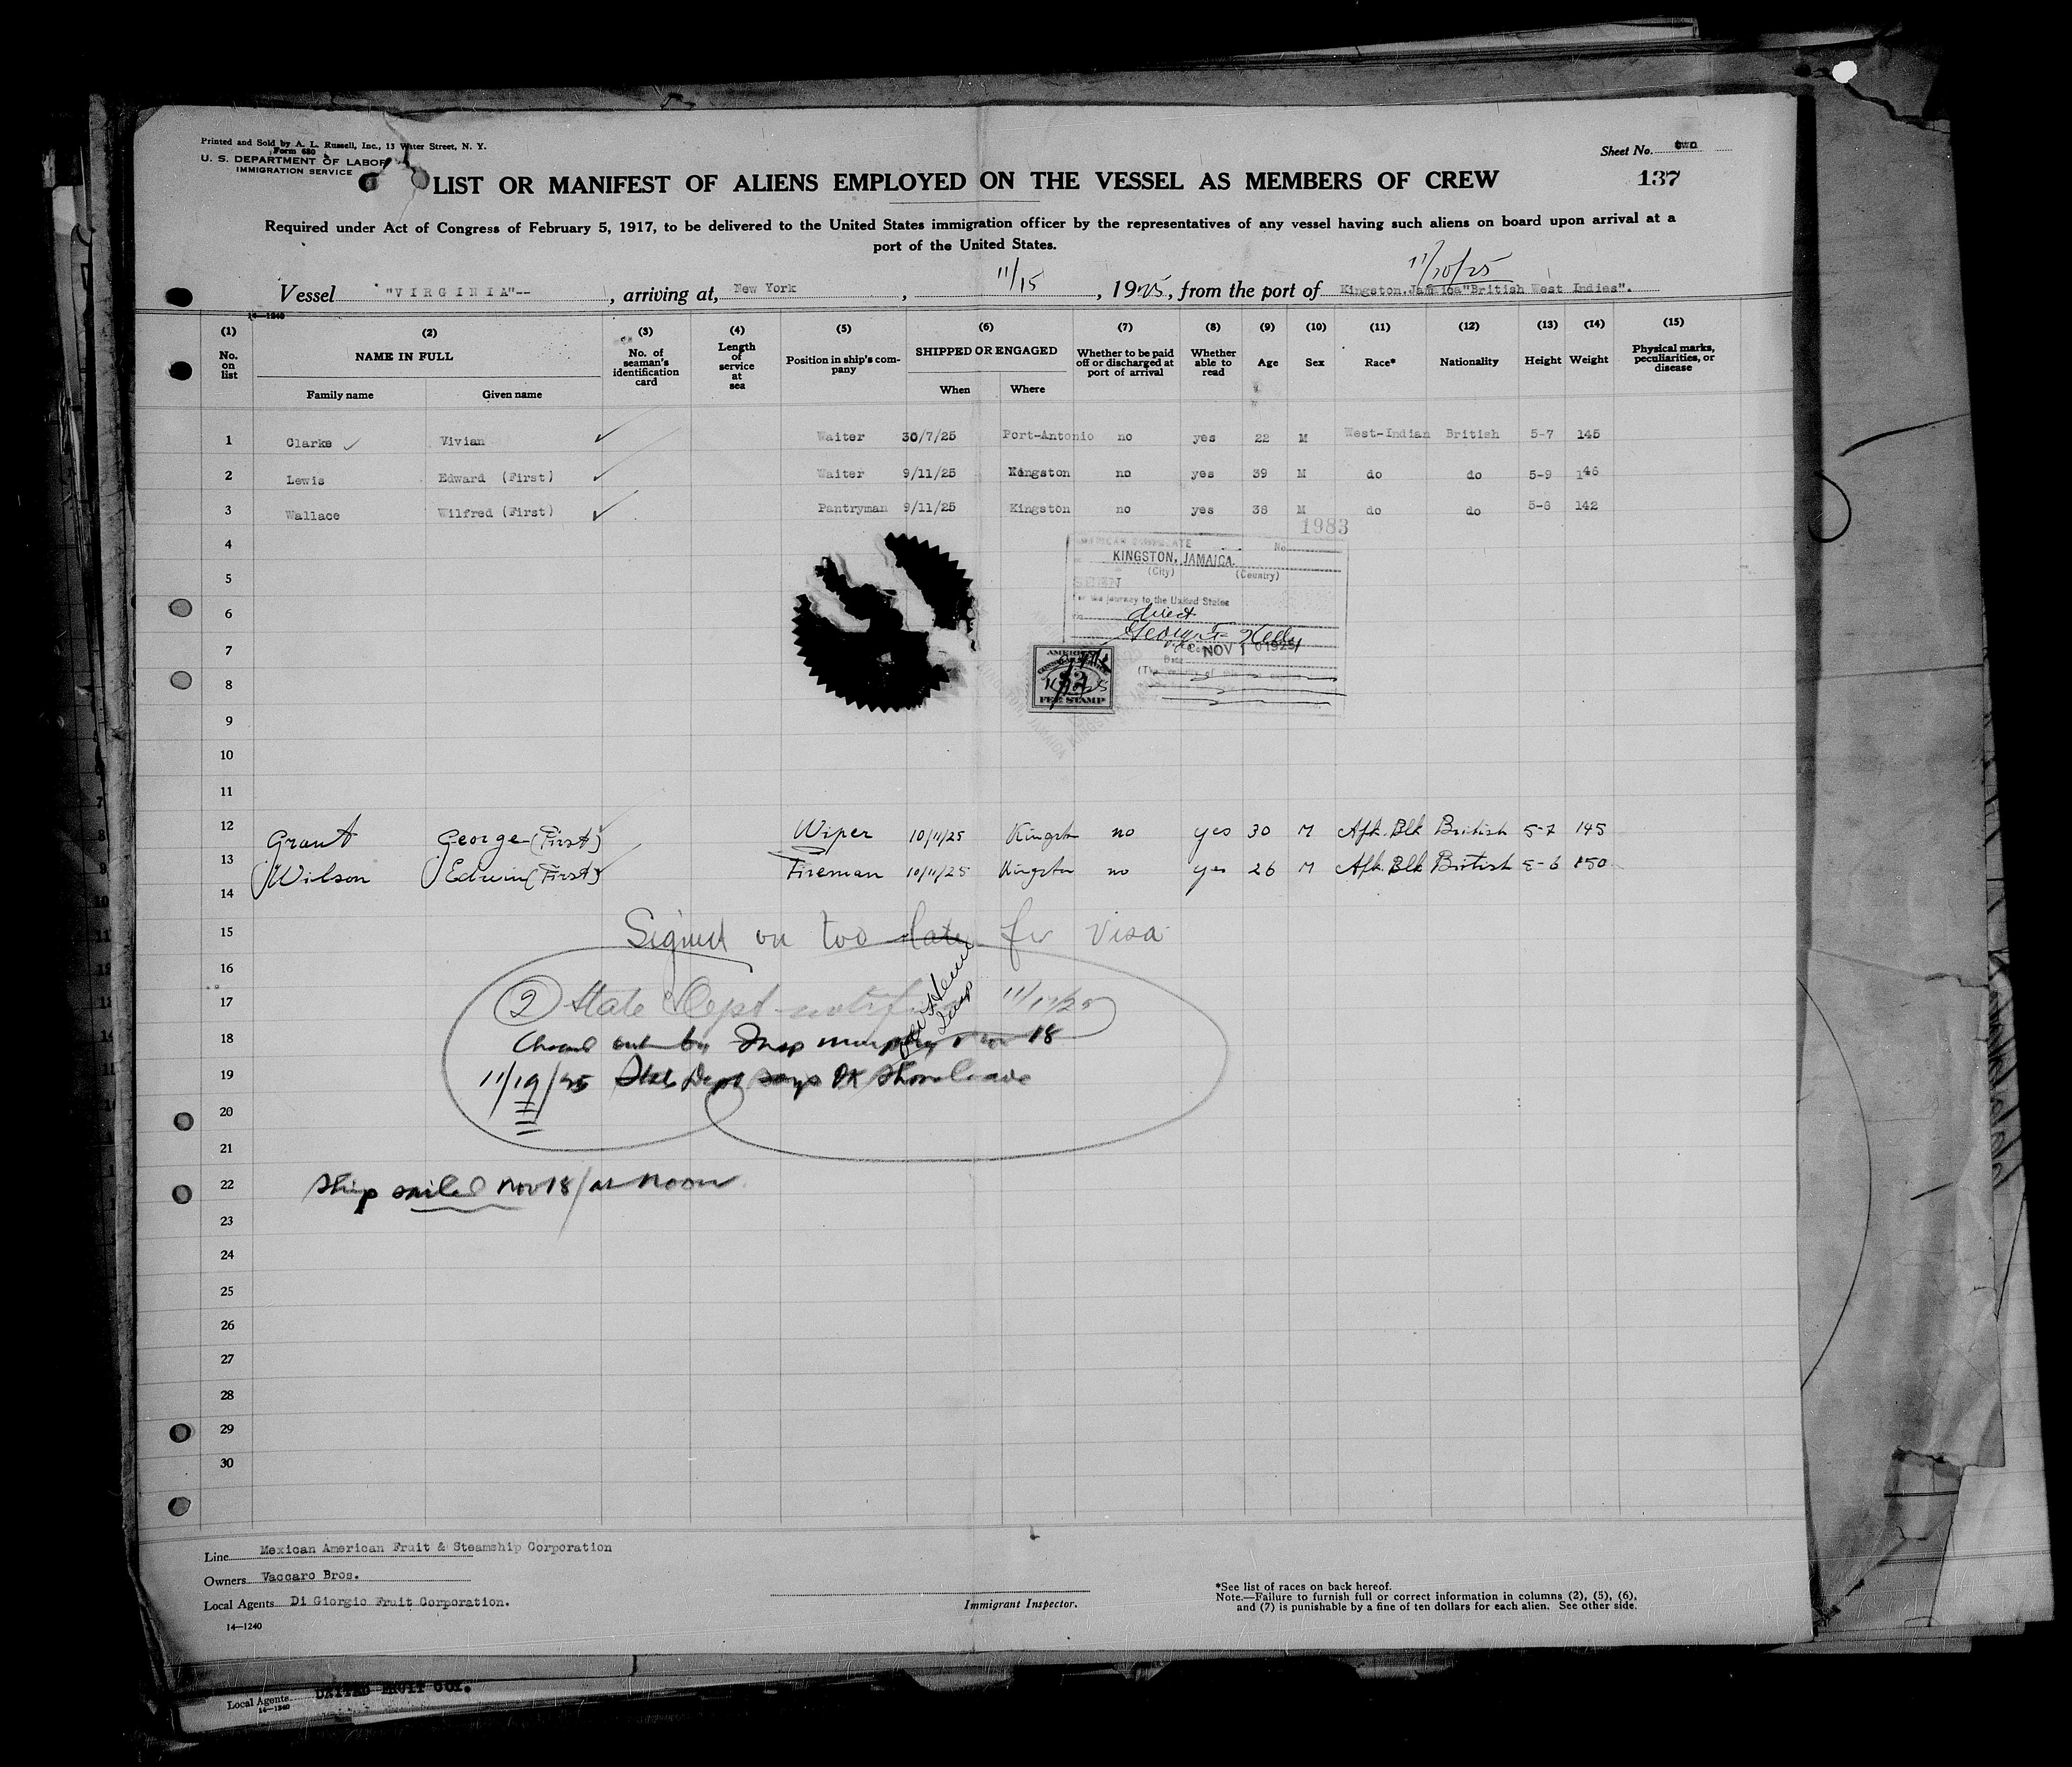 Printed and Sold by A. L. Russell, Inc., 13 Water Street, N. Y.
Form 680
U. S. DEPARTMENT OF LABOR
IMMIGRATION SERVICE
Sheet No. two
137
LIST OR MANIFEST OF ALIENS EMPLOYED ON THE VESSEL AS MEMBERS OF CREW
Required under Act of Congress of February 5, 1917, to be delivered to the United States immigration officer by the representatives of any vessel having such aliens on board upon arrival at a
port of the United States.
11/10/25
Vessel "VIRGINIA"-- , arriving at, New York , 11/15 , 1925, from the port of Kingston.Jamaica"British West Indies".
14—1240
(1) (2) (3) (4) (5) (6) (7) (8) (9) (10) (11) (12) (13) (14) (15)
No. on list NAME IN FULL Family name Given name No. of seaman's identification card Length of service at sea Position in ship's company SHIPPED OR ENGAGED When Where Whether to be paid off or discharged at port of arrival Whether able to read Age Sex Race* Nationality Height Weight Physical marks, peculiarities, or disease
1 Clarke Vivian Waiter 30/7/25 Port-Antonio no yes 22 M West-Indian British 5-7 145
2 Lewis Edward (First) Waiter 9/11/25 Kingston no yes 39 M do do 5-9 146
3 Wallace Wilfred (First) Pantryman 9/11/25 Kingston no yes 38 M do do 5-8 142
1983
4
AMERICAN CONSULATE No.
KINGSTON, JAMAICA.
(City) (Country)
5
SEEN
For the journey to the United States
6
direct
George F. Kelly
7
NOV 10 1925
Date
AMERICAN
CONSULAR SERVICE
$2
FEE STAMP
8
9
10
11
12 Grant George (First) Wiper 10/11/25 Kingston no yes 30 M Afk. Blk British 5-7 145
13 Wilson Edwin (First) Fireman 10/11/25 Kingston no yes 26 M Afk. Blk British 5-6 150
14
15 Signed on too late for Visa
16
17 2 State Dept notified 11/17/25
18 by Insp Murphy Nov 18
19 11/19/25 State Dept says OK Shore leave
20
21
22 Ship sailed Nov 18/ at noon
23
24
25
26
27
28
29
30
Line Mexican American Fruit & Steamship Corporation
Owners Vaccaro Bros.
Local Agents Di Giorgio Fruit Corporation.
14—1240
Immigrant Inspector.
*See list of races on back hereof.
Note.—Failure to furnish full or correct information in columns (2), (5), (6),
and (7) is punishable by a fine of ten dollars for each alien. See other side.
Local Agents UNITED FRUIT COY.
14—1240